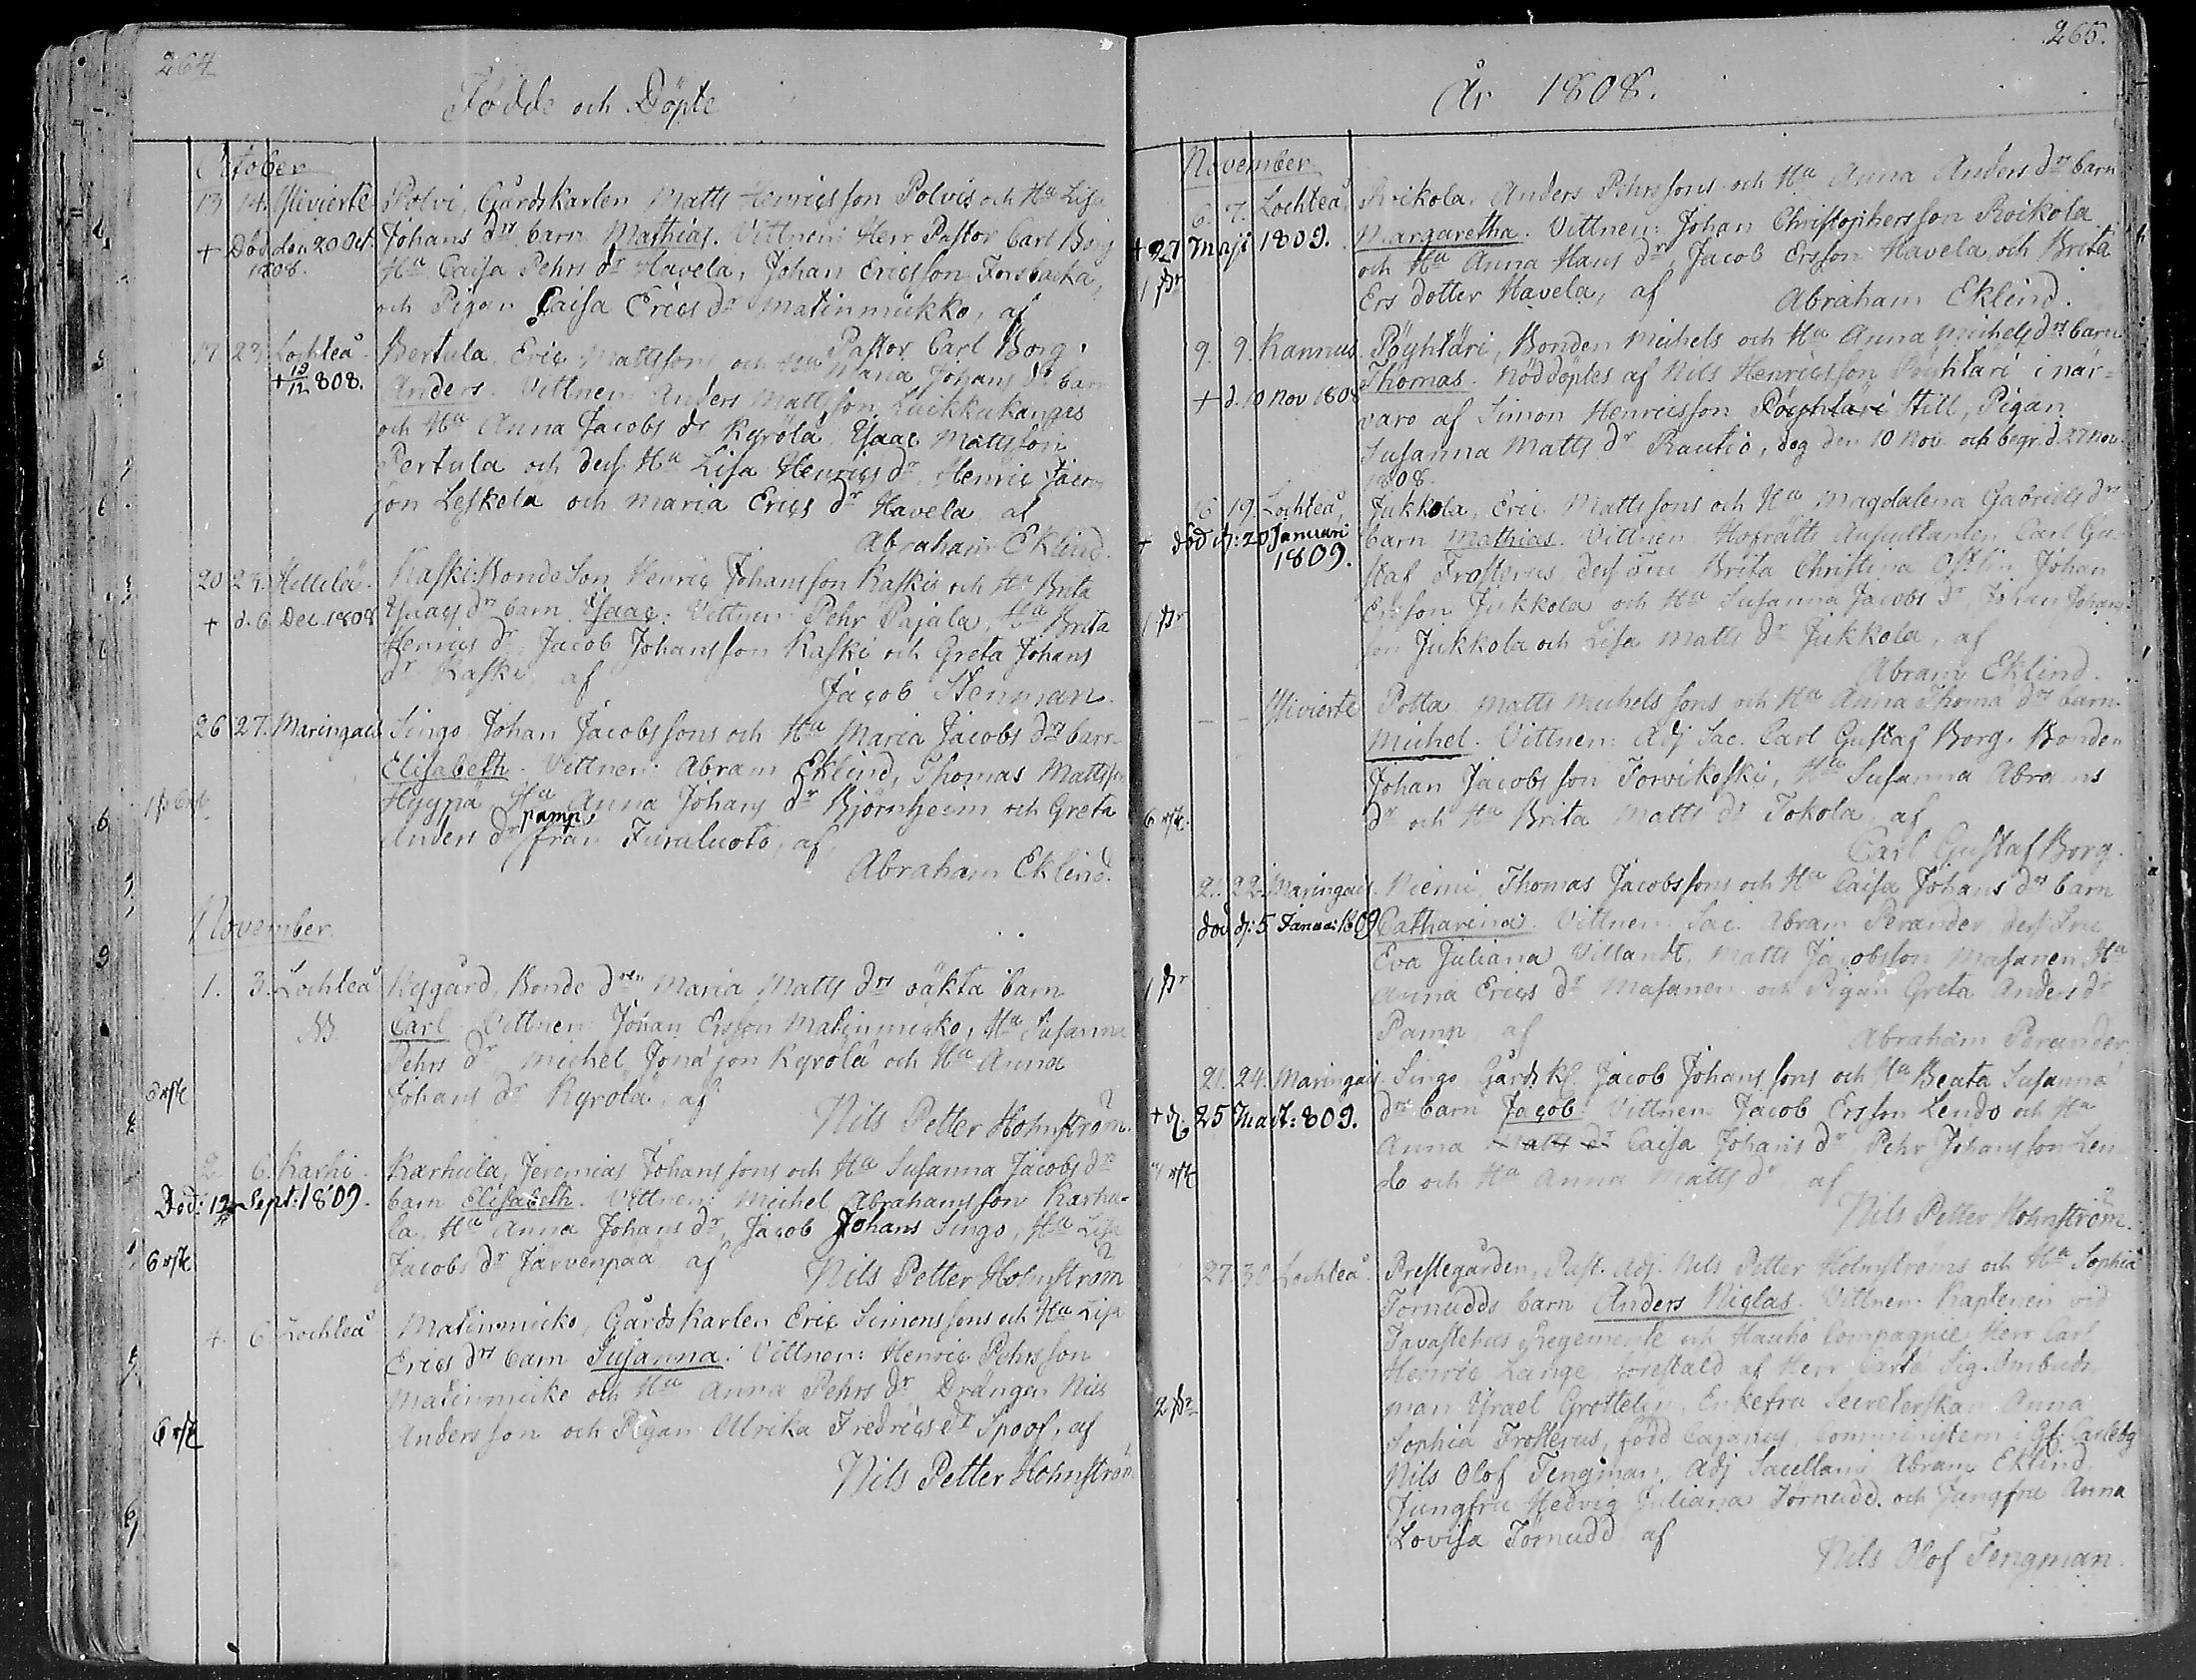 264
Födde och Döpte
October
13 14. Ylivierte Polvi, Gårdskarlen Matts Henricsson Polvis och Hu Lisa
+ Död den 20 Oct. 1808. Johans drs barn Mathias. Vittnen: Herr Pastor Carl Borg
Hu Caisa Pehrs dr Havela, Johan Ericsson Forsbacka,
och Pigan Caisa Erics dr Matinmikko, af
Pastor Carl Borg.
17 23 Lochteå. Bertula, Eric Mattsons och Hu Maria Johans dr barn
+ 19/12 808. Anders. Vittnen Anders Mattsson Luikkukangas
och Hu Anna Jacobs dr Kyrölä, Ysaac Mattsson
Pertula och dess Hu Lisa Henrics dr, Henric Jacobs
son Leskelä och Maria Erics dr Havela af
Abraham Eklind.
20 23. Hillilä. Kaski: Bonde Son Henric Johansson Kaskis och Hu Brita
+ d. 6 Dec. 1808 Ysaacs drs barn Ysaac: Vittnen: Pehr Pajala, Hu Brita
Henrics dr, Jacob Johansson Kaski och Greta Johans
dr Kaski, af
Jacob Stenman.
26 27. Maringais Singo Johan Jacobssons och Hu Maria Jacobs drs barn
Elisabeth. Vittnen: Abram Eklind, Thomas Mattsson
Hyypä Hu Anna Johans dr Björnheim och Greta
Anders dr Pamp från Furuluoto, af,
Abraham Eklind.
November
1. 3. Lochteå Kysgård, Bonde dren Maria Matts drs oäkta barn
Carl Vittnen: Johan Ersson Matinmicko, Hu Susanna
Pehrs dr, Michel Jona son Kyrölä och Hu Anna
6 rsk Johans dr Kyrölä, af
Nils Petter Holmström.
2 6. Karhi. Karhula, Jeremias Johanssons och Hu Susanna Jacobs drs
Död: 12 Sept: 1809. barn Elisabeth. Vittnen: Michel Abrahamsson Karhu-
la, Hu Anna Johans dr, Jacob Johans Singo, Hu Lisa
6 rsk Jacobs dr Järvenpää af
Nils Petter Holmström
4. 6 Lochteå Matinmicko, Gårdskarlen Eric Simonssons och Hu Lisa
Erics drs barn Susanna: Vittnen: Henric Pehrsson
Matinmicko och Hu Anna Pehrs dr Drängen Nils
6 rsk Andersson och Pigan Ulrika Fredrics dr Spoof, af
Nils Petter Holmström
265.
År 1808.
November
6. 7. Lochteå, Roikola, Anders Pehrssons och Hu Anna Anders drs barn
+ 27 Maji 1809. Margaretha. Vittnen: Johan Christophersson Roikola
och Hu Anna Hans dr, Jacob Ersson Havela och Brita
Ers dotter Havela, af Abraham Eklind.
9. 9. Kannus. Pöyhtäri, Bonden Michels och Hu Anna Michels drs barn
+ d. 10 Nov 1808 Thomas. Nöddöptes af Nils Henricsson Pöyhtäri i när-
varo af Simon Henricsson Pöyhtäri Still, Pigan
Susanna Matts dr Rautio, dog den 10 Nov. och begr. d. 27 Nov.
1808.
16 19. Lochteå, Jukkola, Eric Mattssons och Hu Magdalena Gabriels drs
+ död d: 20 Januari 1809. barn Mathias. Vittnen Hofrätts Auscultanten Carl Gu-
staf Frosterus, dess Fru Brita Christina Johan
Ersson Jukkola och Hu Susanna Jacobs dr, Johan Johans
son Jukkola och Lisa Matts dr Jukkola, af
Abram Eklind.
- - Ylivierte Potta. Matts Michels sons och Hu Anna Thomä drs barn.
Michel. Vittnen: Adj Sac. Carl Gustaf Borg. Bonden
Johan Jacobsson Torvikoski, Hu Susanna Abrams
6 rsk. dr och Hu Brita Matts dr Tokola af
Carl Gustaf Borg.
21. 22. Maringais. Niemi, Thomas Jacobssons och Hu Caisa Johans drs barn
död d: 5 Januari 1809 Catharina. Vittnen: Sac. Abram Perander, dess Fru
Eva Juliana Villandt, Matts Jacobsson Masanen, Hu
Anna Erics dr Masanen och Pigan Greta Anders dr
Pamp af
Abraham Perander
21. 24. Maringais. Singo Gårdsk. Jacob Johanssons och Hu Beata Susanna
+ d. 25 Mart: 809. drs barn Jacob. Vittnen Jacob Ersson Lendo och Hu
Anna Matts dr Caisa Johans dr, Pehr Johansson Len
do och Hu Anna Matts dr af
Nils Petter Holmström.
27. 30. Lochteå. Prestegården, Past. Adj. Nils Petter Holmströms och Hu Sophia
Törnudds barn Anders Niclas. Vittnen: Kaptenen vid
Tavastehus Regemente och Hauho Compagnie Herr Carl
Henric Lange, förestald af Herr
man Ysrael Grottelin, Enkefru Secreterskan Anna
Sophia Frosterus, född Cajanus, Comministern i Gl: Carleby
Nils Olof Tengman, Adj Sacellani Abram Eklind
Jungfru Hedvig Juliana Törnudd. och Jungfru Anna
Lovisa Törnudd af
Nils Olof Tengman.